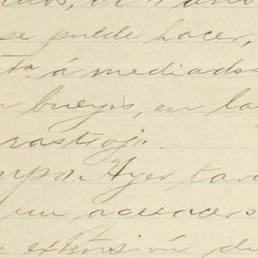 se puede hacer,
ta. á mediados
bueyes, en la
rastrojo.
mpo. Ayer tar
un aguacero
extensión de